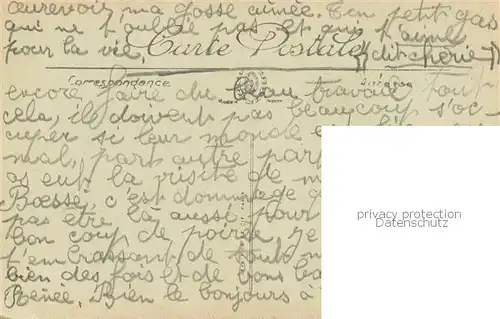 aurevoir, ma gosse aimée. Ton petit gas
qui ne t'oublie pas et qui t'aime
pour la vie.
(dit chérie)
Carte Postale
Correspondance
encore faire du beau travail tout
cela, ils doivent pas beaucoup s'oc-
cuper si leur monde
mal, part autre part
as eut la visite de m
Boessé, c'est dommage
pas etre là aussi pour
bon coup de poire, je
t'embrassant de tout
bien des fois et de bons
Renée. Bien le bonjours à
privacy protection
Datenschutz